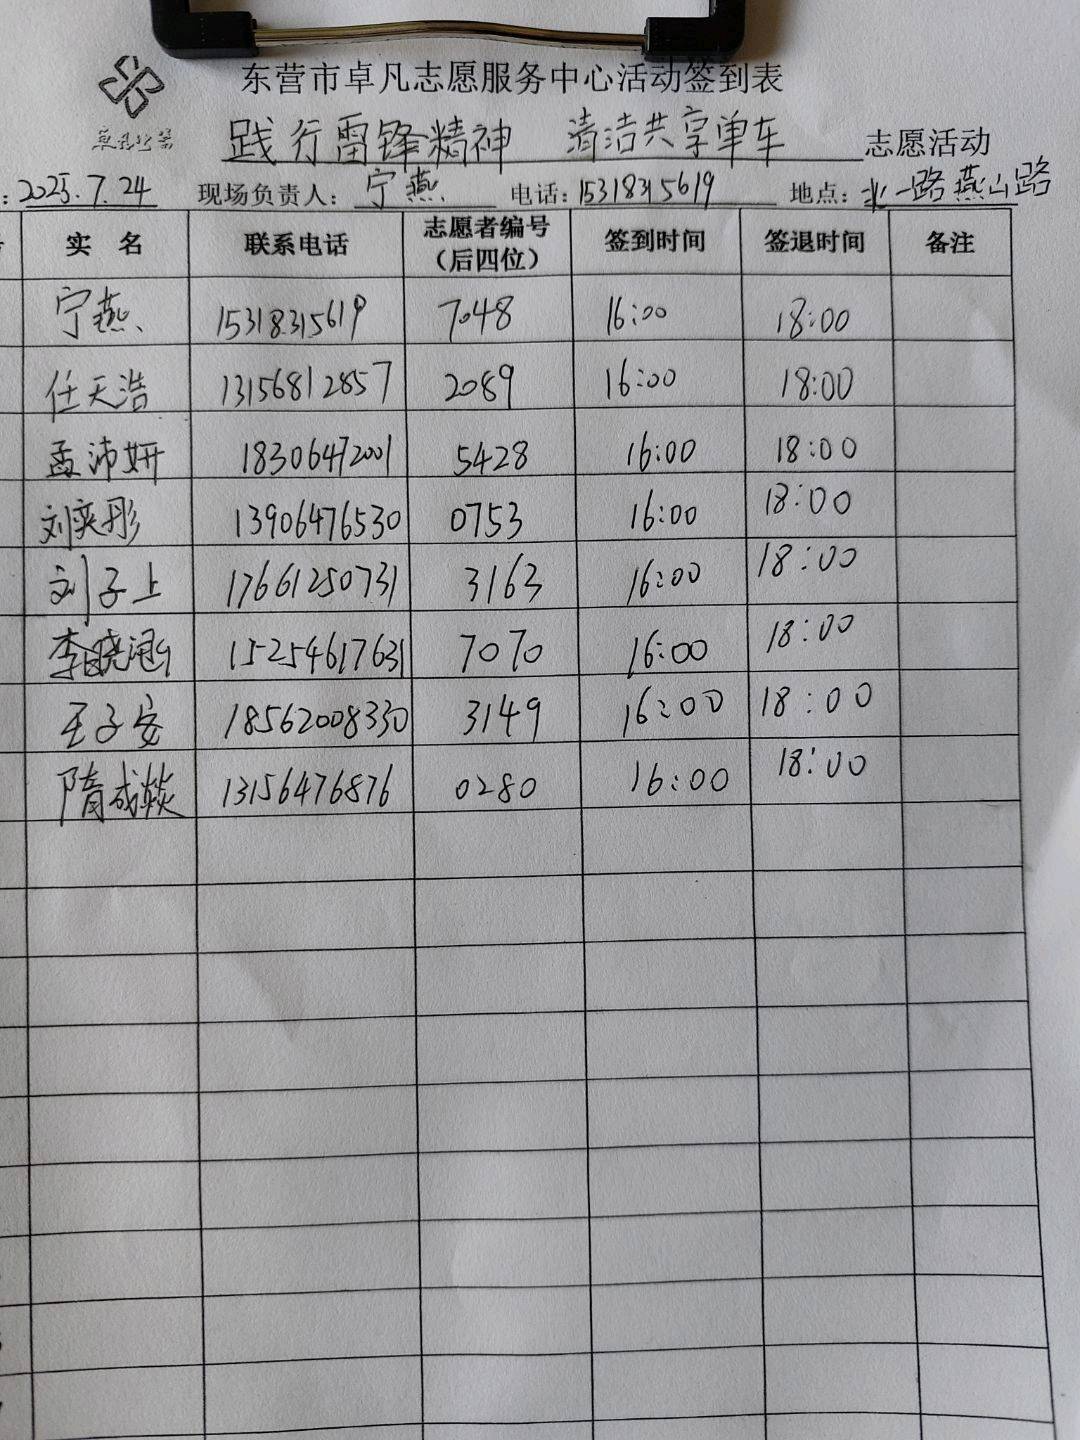 东营市卓凡志愿服务中心活动签到表
卓凡公益
践行雷锋精神 清洁共享单车 志愿活动
: 2025.7.24 现场负责人: 宁燕 电话: 15318315619 地点: 北一路燕山路
实 名 联系电话 志愿者编号(后四位) 签到时间 签退时间 备注
宁燕 15318315619 7048 16:00 18:00
任天浩 13156812857 2089 16:00 18:00
孟沛妍 18306472001 5428 16:00 18:00
刘奕彤 13906476530 0753 16:00 18:00
刘子上 17661250731 3163 16:00 18:00
李晓 15254617631 7070 16:00 18:00
王子安 18562008330 3149 16:00 18:00
隋成燚 13156476876 0280 16:00 18:00